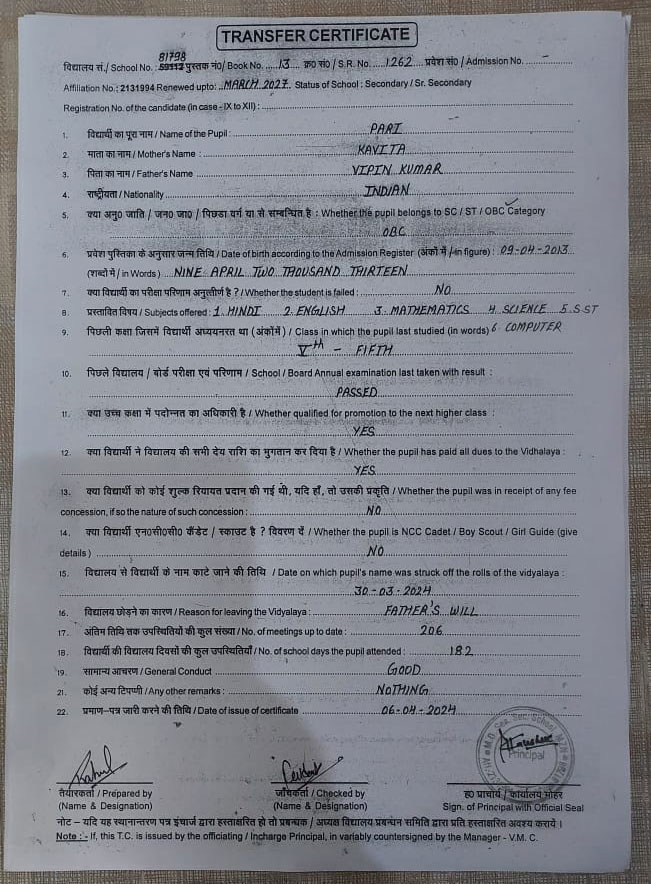 TRANSFER CERTIFICATE
81798
विद्यालय सं./ School No. 59112 पुस्तक नं0/ Book No. 13 क्र0 सं0 / S.R. No. 1262 प्रवेश सं0 / Admission No.
Affiliation No.: 2131994 Renewed upto: MARCH 2027 Status of School : Secondary / Sr. Secondary
Registration No. of the candidate (in case - IX to XII) :
1. विद्यार्थी का पूरा नाम / Name of the Pupil : PARI
2. माता का नाम / Mother's Name : KAVITA
3. पिता का नाम / Father's Name VIPIN KUMAR
4. राष्ट्रीयता / Nationality INDIAN
5. क्या अनु0 जाति / जन0 जा0 / पिछडा वर्ग या से सम्बन्धित है : Whether the pupil belongs to SC / ST / OBC Category
OBC
6. प्रवेश पुस्तिका के अनुसार जन्म तिथि / Date of birth according to the Admission Register (अंकों में / in figure) : 09-04-2013
(शब्दों में / in Words) NINE APRIL TWO THOUSAND THIRTEEN
7. क्या विद्यार्थी का परीक्षा परिणाम अनुत्तीर्ण है ? / Whether the student is failed : NO
8. प्रस्तावित विषय / Subjects offered : 1. HINDI 2. ENGLISH 3. MATHEMATICS 4. SCIENCE 5. S.ST
9. पिछली कक्षा जिसमें विद्यार्थी अध्ययनरत था (अंकोंमें) / Class in which the pupil last studied (in words) 6 COMPUTER
Vth - FIFTH
10. पिछले विद्यालय / बोर्ड परीक्षा एवं परिणाम / School / Board Annual examination last taken with result :
PASSED
11. क्या उच्च कक्षा में पदोन्नत का अधिकारी है / Whether qualified for promotion to the next higher class :
YES
12. क्या विद्यार्थी ने विद्यालय की सभी देय राशि का भुगतान कर दिया है / Whether the pupil has paid all dues to the Vidhalaya :
YES
13. क्या विद्यार्थी को कोई शुल्क रियायत प्रदान की गई थी, यदि हाँ, तो उसकी प्रकृति / Whether the pupil was in receipt of any fee
concession, if so the nature of such concession : NO
14. क्या विद्यार्थी एन0सी0सी0 कैंडेट / स्काउट है ? विवरण दें / Whether the pupil is NCC Cadet / Boy Scout / Girl Guide (give
details ) NO
15. विद्यालय से विद्यार्थी के नाम काटे जाने की तिथि / Date on which pupil's name was struck off the rolls of the vidyalaya :
30-03-2024
16. विद्यालय छोड़ने का कारण / Reason for leaving the Vidyalaya : FATHER'S WILL
17. अंतिम तिथि तक उपस्थितियों की कुल संख्या / No. of meetings up to date : 206
18. विद्यार्थी की विद्यालय दिवसों की कुल उपस्थितियाँ / No. of school days the pupil attended : 182
19. सामान्य आचरण / General Conduct GOOD
21. कोई अन्य टिप्पणी / Any other remarks : NOTHING
22. प्रमाण-पत्र जारी करने की तिथि / Date of issue of certificate 06-04-2024
Principal
तैयारकर्ता / Prepared by जाँचकर्ता / Checked by ह0 प्राचार्य / कार्यालय मोहर
(Name & Designation) (Name & Designation) Sign. of Principal with Official Seal
नोट – यदि यह स्थानान्तरण पत्र इंचार्ज द्वारा हस्ताक्षरित हो तो प्रबन्धक / अध्यक्ष विद्यालय प्रबन्धन समिति द्वारा प्रति हस्ताक्षरित अवश्य करायें ।
Note :- If, this T.C. is issued by the officiating / Incharge Principal, in variably countersigned by the Manager - V.M. C.